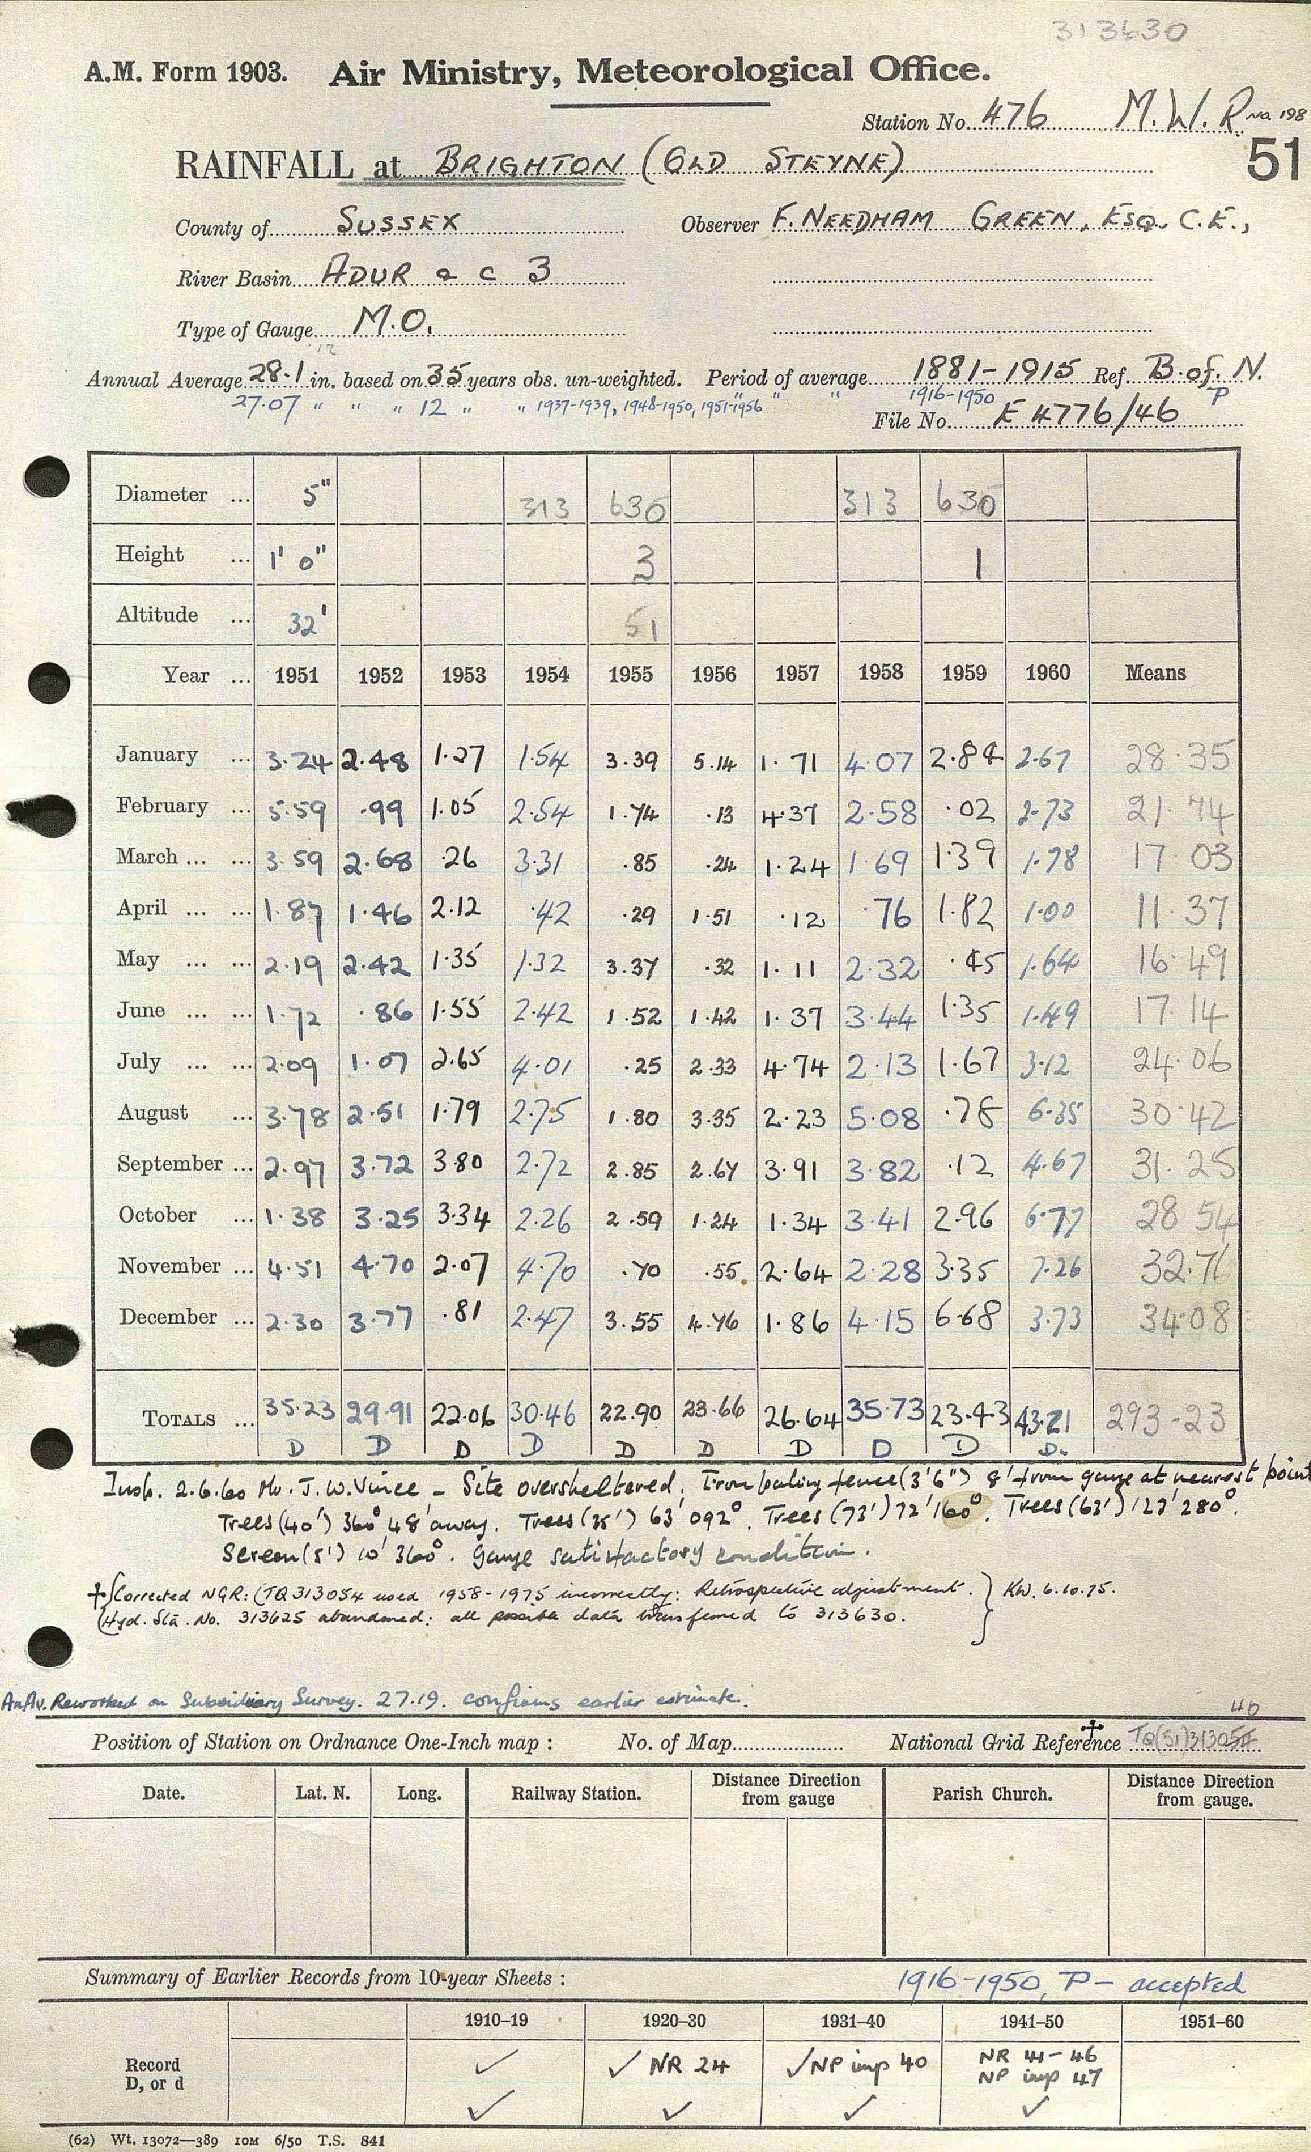 313630
A.M. Form 1903. Air Ministry, Meteorological Office.
Station No. 476 M.W.R. no. 198
51
RAINFALL at BRIGHTON (OLD STEYNE)
County of SUSSEX Observer F. NEEDHAM GREEN, ESQ. C.E.,
River Basin ADUR a c 3
Type of Gauge M.O.
Annual Average 28.1 in. based on 35 years obs. un-weighted. Period of average 1881-1915 Ref. B. of. N.
27.07 " " " 12 " " 1937-1939, 1948-1950, 1951-1956 " " 1916-1950 P
File No. E 4776/46
Diameter ... 5" 313 630 313 630
Height ... 1' 0" 3 1
Altitude ... 32' 51
Year ... 1951 1952 1953 1954 1955 1956 1957 1958 1959 1960 Means
January ... 3.24 2.48 1.27 1.54 3.39 5.14 1.71 4.07 2.84 2.67 28.35
February ... 5.59 .99 1.05 2.54 1.74 .13 4.37 2.58 .02 2.73 21.74
March ... ... 3.59 2.68 .26 3.31 .85 .24 1.24 1.69 1.39 1.78 17.03
April ... ... 1.87 1.46 2.12 .42 .29 1.51 .12 .76 1.82 1.00 11.37
May ... ... 2.19 2.42 1.35 1.32 3.37 .32 1.11 2.32 .45 1.64 16.49
June ... ... 1.72 .86 1.55 2.42 1.52 1.42 1.37 3.44 1.35 1.49 17.14
July ... ... 2.09 1.07 2.65 4.01 .25 2.33 4.74 2.13 1.67 3.12 24.06
August ... 3.78 2.51 1.79 2.75 1.80 3.35 2.23 5.08 .78 6.35 30.42
September ... 2.97 3.72 3.80 2.72 2.85 2.67 3.91 3.82 .12 4.67 31.25
October ... 1.38 3.25 3.34 2.26 2.59 1.24 1.34 3.41 2.96 6.77 28.54
November ... 4.51 4.70 2.07 4.70 .70 .55 2.64 2.28 3.35 7.26 32.76
December ... 2.30 3.77 .81 2.47 3.55 4.76 1.86 4.15 6.68 3.73 34.08
TOTALS ... 35.23 29.91 22.06 30.46 22.90 23.66 26.64 35.73 23.43 43.21 293.23
D D D D D D D D D D.
Insp. 2.6.60 Mr. J. W. Vince - Site oversheltered. Iron paling fence (3'6") 8' from gauge at nearest point
Trees (40') 360° 48' away. Trees (35') 63' 092°. Trees (73') 72' 160°. Trees (63') 123' 280°.
Screen (5') 10' 360°. Gauge satisfactory condition.
† Corrected NGR: (TQ 313054 used 1958-1975 incorrectly: Retrospective adjustment. } KW. 6.10.75.
Hyd. Sta. No. 313625 abandoned: all possible data transferred to 313630.
An.Av. Reworked on Subsidiary Survey. 27.19. confirms earlier estimate.
Position of Station on Ordnance One-Inch map : No. of Map National Grid Reference † TQ(51)313054 40
Date. Lat. N. Long. Railway Station. Distance Direction from gauge Parish Church. Distance Direction from gauge.
Summary of Earlier Records from 10-year Sheets : 1916-1950, P - accepted
1910-19 1920-30 1931-40 1941-50 1951-60
Record ✓ ✓ NR 24 ✓ NP imp 40 NR 41-46
D, or d NP imp 47
✓ ✓ ✓ ✓
(62) Wt. 13072—389 10M 6/50 T.S. 841